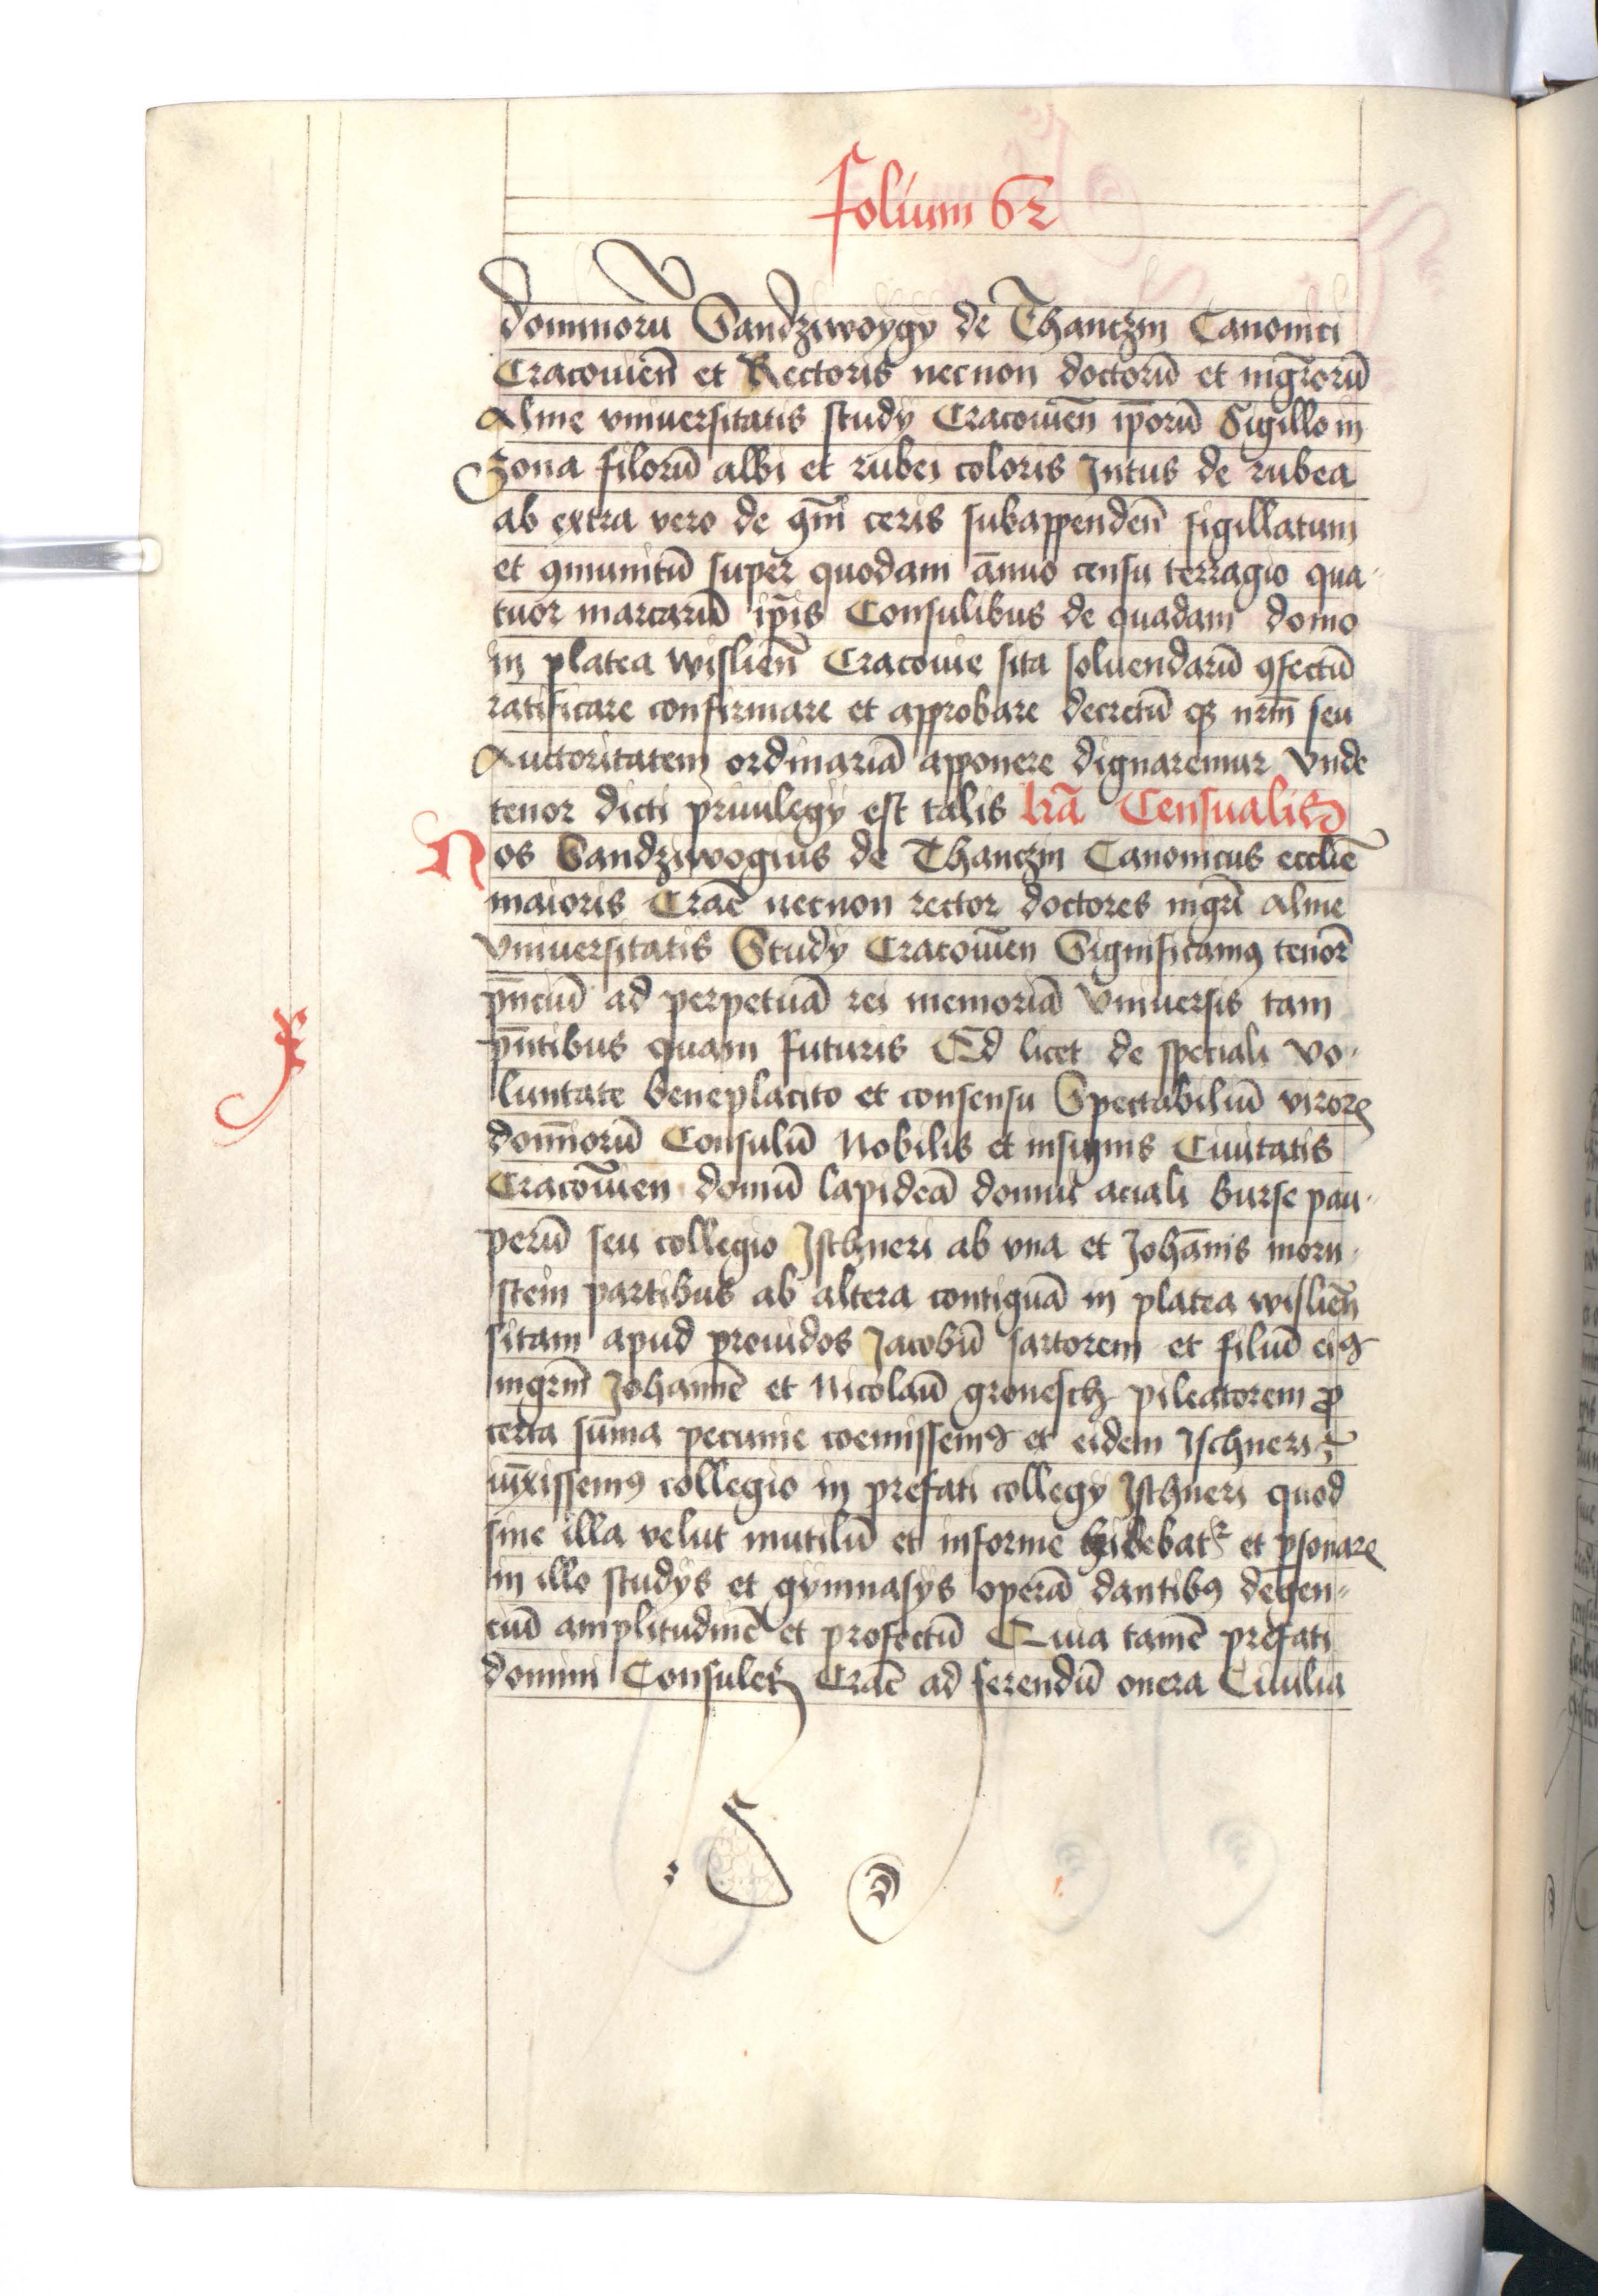 folium 62
dominorū Sandziwoygy de Thanczin Canonici
Cracouieñ et Rectoris necnon doctorū et mgrorū
Alme vniuersitatis study Cracouień ip̄orū Sigillo in
Zona filorū albi et rubei coloris Intus de rubea
ab extra vero de 9m̄i ceris subappendeñ sigillatum
et 9munitū super quodam ānuo censu terragio qua-
tuor marcarū ip̄is Consulibus de quadam domo
in platea wislieñ Cracouie sita soluendarū 9fectū
ratificare confirmare et approbare decretū qz nr̄m seu
Auctoritatem ordinariā apponere dignaremur Vnde
tenor dicti priuilegy est talis lr̄a Censualis
Nos Sandziwogius de Thanczin Canonicus eccliē
maioris Crac̄ necnon rector doctores mgr̄i Alme
Vniuersitatis Study Cracouīen Significamq tenor̄
p̄ncıū ad perpetuā rei memoriā Vniuersis tam
p̄ntibus quam futuris Qd licet de speciali vo-
luntate beneplacito et consensu Spectabiliū viroꝝ
domīorū Consulū Nobilis et insignis Ciuitatis
Cracouīen domū lapideā domui aciali burse pau-
perū seu collegio Isthneri ab vna et Johānis morn-
stein partibus ab altera contiguā in platea wislieñ
sitam apud prouidos Jacobū sartorem et filiū eiꝯ
mgrm̄ Johannē et Nicolaū gronesch pileatorem ꝓ
certa sūma pecunie coemissemꝯ et eidem Ischneri
iūxissemꝯ collegio in prefati collegy Isthneri quod
sine illa velut mutilū et informe videbatr et ꝑsonaꝝ
in illo studys et gymnasys operā dantibꝯ degen-
ciū amplitudinē et profectū Quia tamē prefati
domini Consules Crac̄ ad ferendū onera Ciuilia